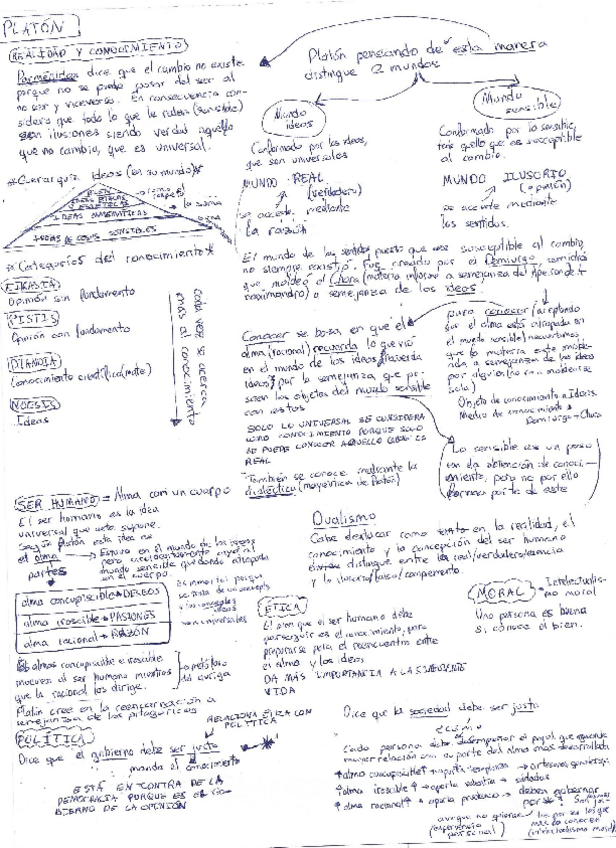 PLATÓN
REALIDAD Y CONOCIMIENTO
Parménides dice que el cambio no existe
porque no se puede pasar del ser al
no ser y viceversa. En consecuencia con-
sidera que todo lo que le rodea (sensible)
son ilusiones siendo verdad aquello
que no cambia, que es universal.
Platón pensando de esta manera
distingue 2 mundos
Mundo
ideas
Conformado por las ideas,
que son universales
MUNDO REAL
(verdadero)
se accede mediante
la razón
Mundo
sensible
Conformado por lo sensible,
todo aquello que es susceptible
al cambio.
MUNDO ILUSORIO
(opinión)
se accede mediante
los sentidos.
*Jerarquiz ideas (en su mundo)*
BIEN
IDEAS MATEMÁTICAS
IDEAS DE COSAS SENSIBLES
*Categorías del conocimiento*
EIKASIA
Opinión sin fundamento
PISTIS
Opinión con fundamento
DIANOIA
Conocimiento científico (mate)
NOESIS
Ideas
Cada vez se acerca
más al conocimiento
El mundo de los sentidos puesto que es susceptible al cambio
no siempre existió. Fue creado por el Demiurgo
que moldeó el Chora (materia informe a semejanza del Ápeiron de
Anaximandro) a semejanza de las ideas
Conocer se basa en que el
alma (racional) recuerda lo que vio
en el mundo de las ideas (recuerda
ideas) por la semejanza que po-
seen los objetos del mundo sensible
con estas
SOLO LO UNIVERSAL SE CONSIDERA
COMO CONOCIMIENTO PORQUE SOLO
SE PUEDE CONOCER AQUELLO QUE ES
REAL
También se conoce mediante la
dialéctica (mayéutica de Platón)
Para conocer (aceptando
que el alma está atrapada en
el mundo sensible) necesitamos
que la materia esté molde-
ada a semejanza de las ideas
por alguien
Objeto de conocimiento → Ideas
Medio de conocimiento →
Demiurgo + Chora
Lo sensible es un paso
en la obtención de conoci-
miento, pero no por ello
forma parte de este
SER HUMANO = Alma con un cuerpo
El ser humano es la idea
universal que esto supone.
Según Platón esta idea es
el alma → Estuvo en el mundo de las ideas
pero accidentalmente cayó al
mundo sensible quedando atrapada
en el cuerpo.
partes
alma concupiscible → DESEOS
alma irascible → PASIONES
alma racional → RAZÓN
Es inmortal porque
se trata de un concepto
y los conceptos
ideas
son universales
Las almas concupiscible e irascible
mueven al ser humano mientras
que la racional los dirige.
metáfora
del auriga
Platón cree en la reencarnación a
semejanza de los pitagóricos
Dualismo
Cabe destacar como tanto en la realidad, el
conocimiento y la concepción del ser humano
distingue entre lo real/verdadero/esencia
y lo ilusorio/falso/complemento.
ÉTICA
El bien que el ser humano debe
perseguir es el conocimiento, para
prepararse para el reencuentro entre
el alma y las ideas
DA MÁS IMPORTANCIA A LA SIGUIENTE
VIDA
MORAL
Intelectualis-
mo moral
Una persona es buena
si conoce el bien.
POLÍTICA
RELACIONA ÉTICA CON
POLÍTICA
Dice que el gobierno debe ser justo
mande el conocimiento
ESTÁ EN CONTRA DE LA
DEMOCRACIA PORQUE ES EL GO-
BIERNO DE LA OPINIÓN
Dice que la sociedad debe ser justa
¿cómo?
Cada persona debe desempeñar el papel que guarde
mayor relación con su parte del alma más desarrollada
↑alma concupiscible↑ → aporta templanza →
↑alma irascible↑ → aporta valentía → soldados
↑alma racional↑ → aporta prudencia → deben gobernar
aunque no quieran